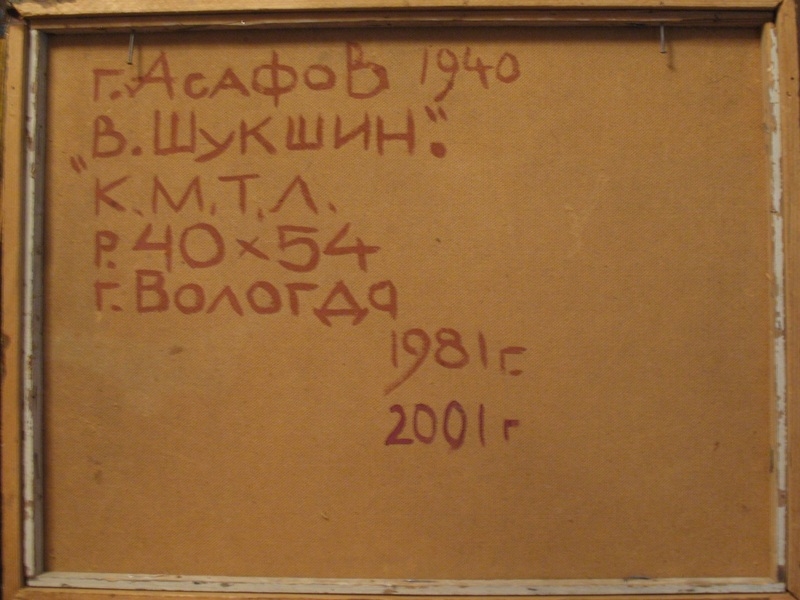 г. Асафов 1940
"В. Шукшин".
К.М.Т.Л.
Р. 40×54
г. Вологда
1981 г.
2001 г